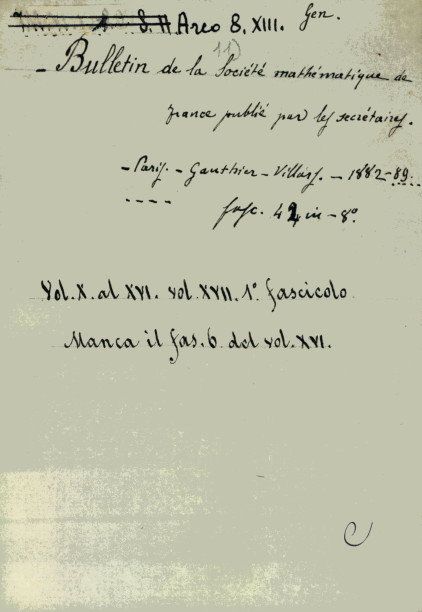 S. A Arco 8. XIII. Gen.
11)
- Bulletin de la Société mathématique de
france publié par les secrétaires.
- Paris. - Gauthier - Villars. - 1882-89...
----
fasc. 42 in - 8º.
Vol. X. al XVI. vol. XVII. 1º fascicolo
Manca il fas. 6 del vol. XVI.
C